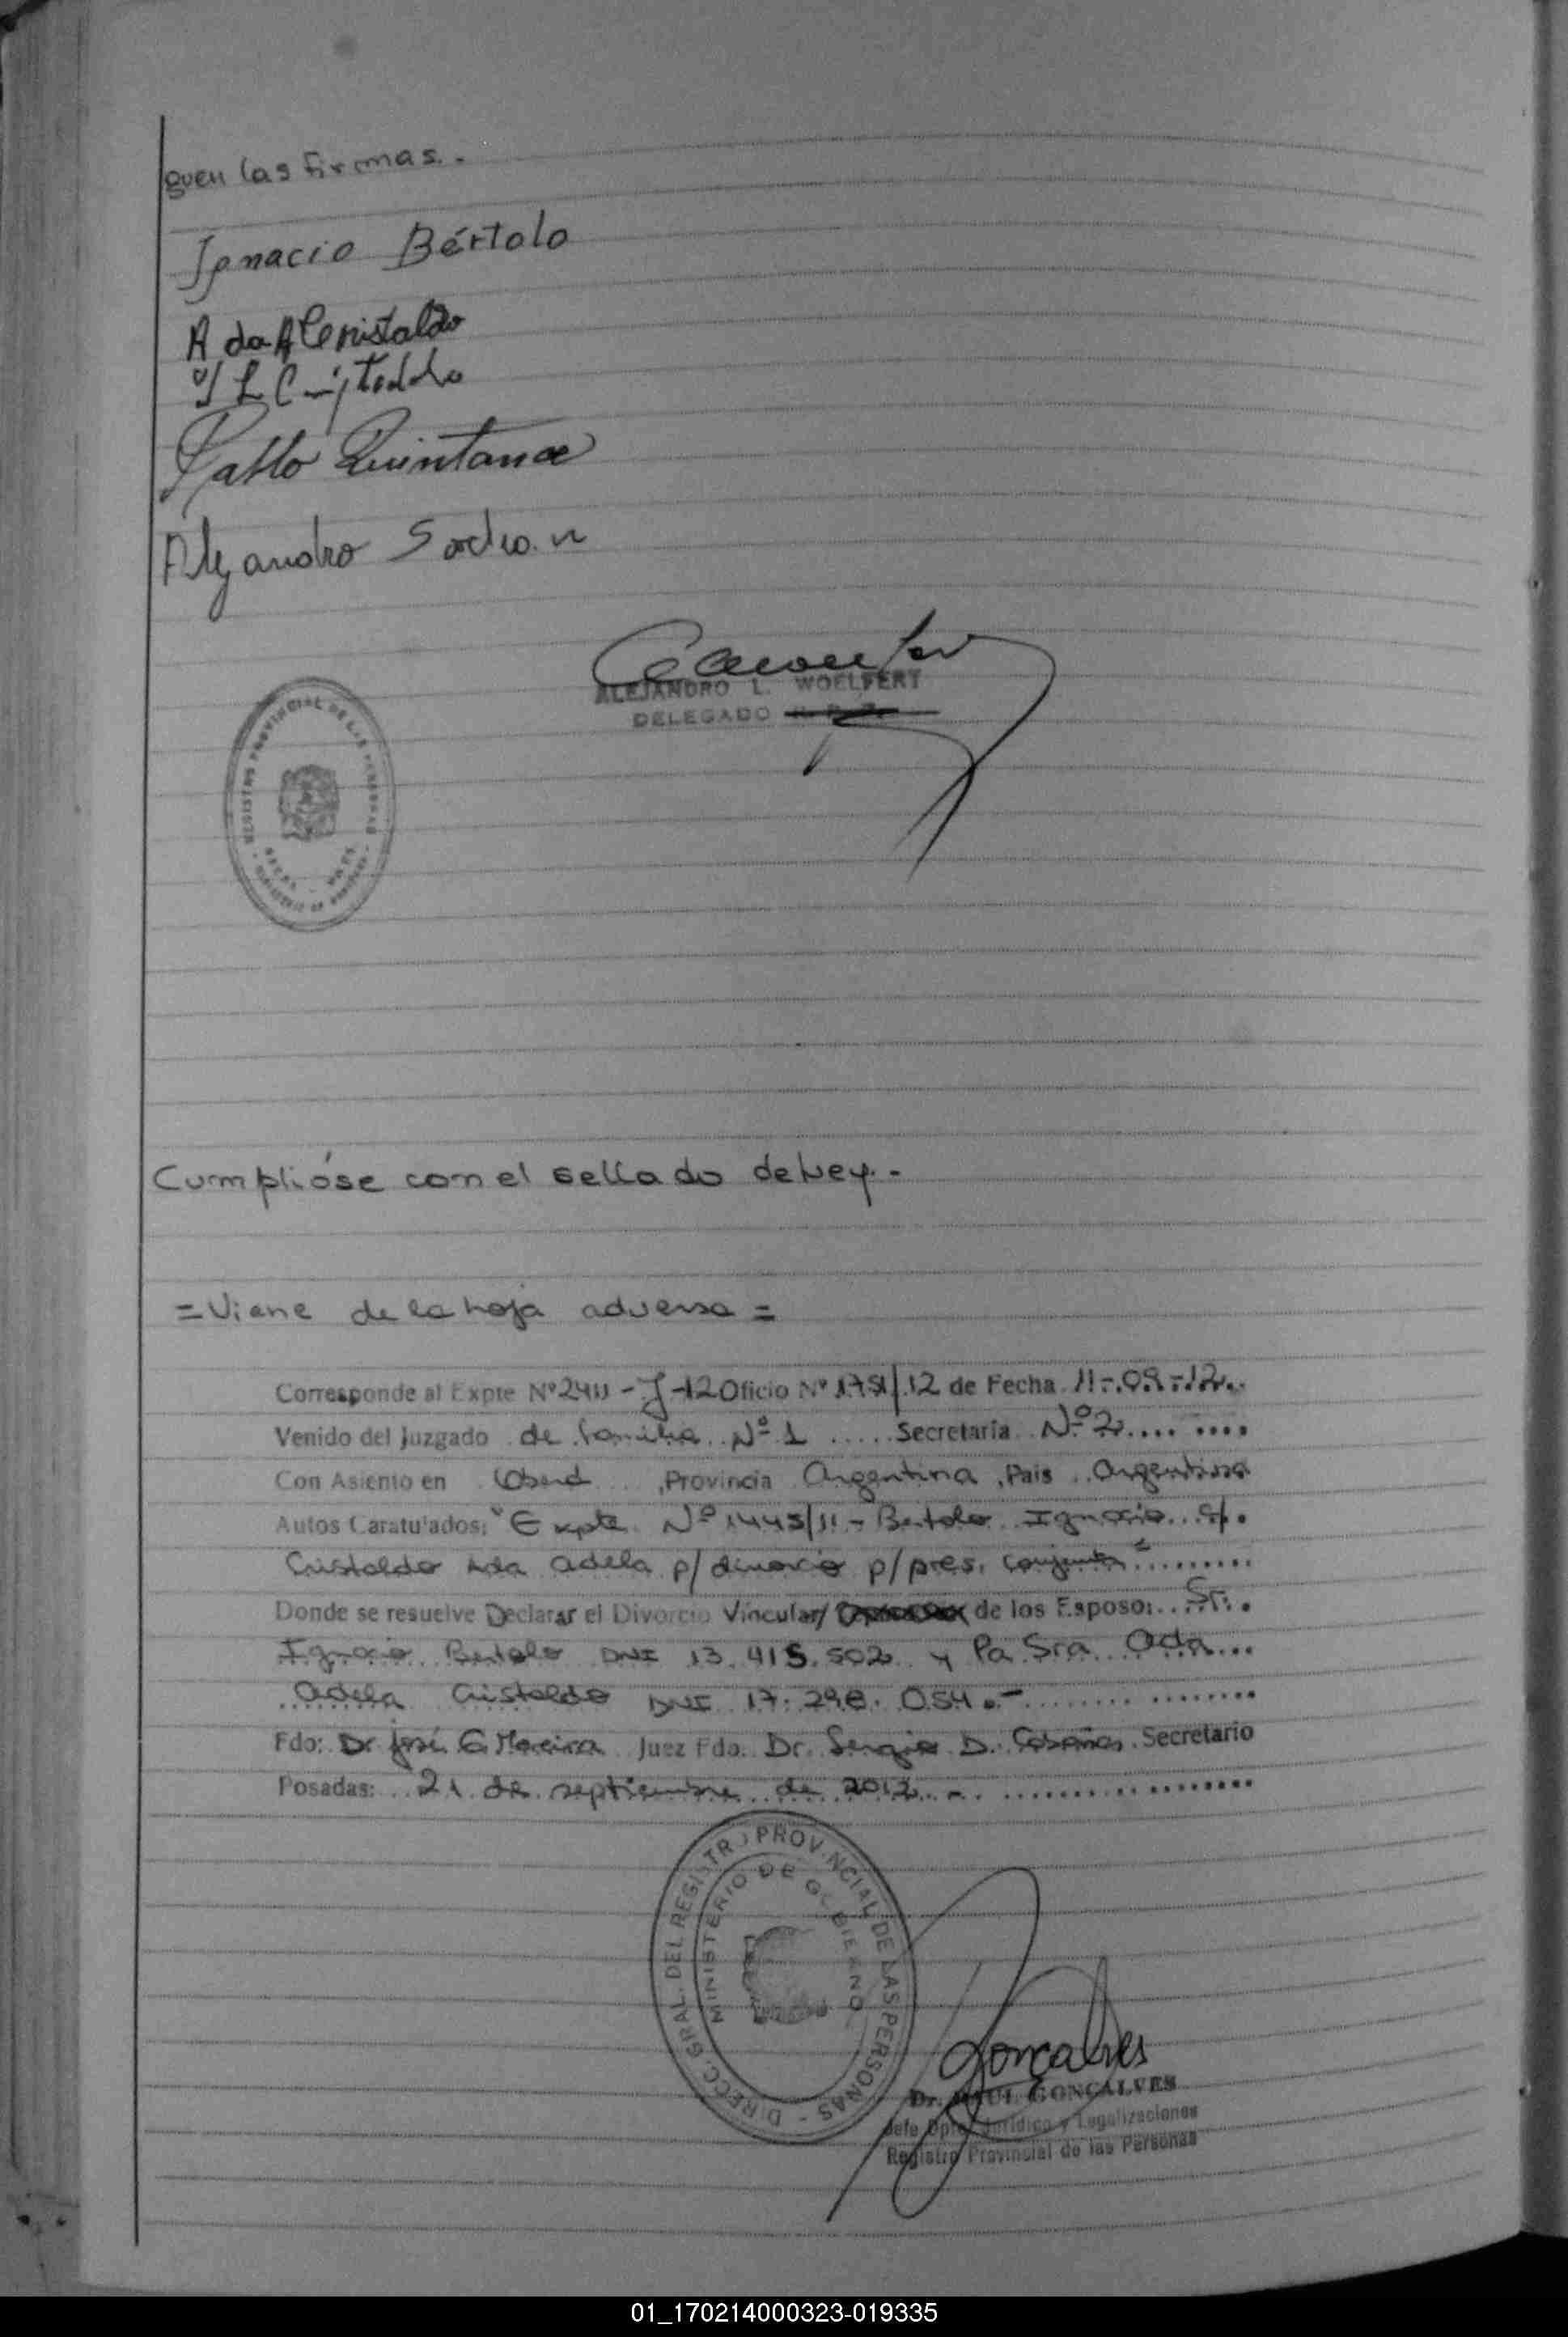 guen las firmas.-
Ignacio Bértolo
Ada A Cristaldo
Pablo Quintana
Alejandro
ALEJANDRO L. WOELFERT
DELEGADO
REGISTRO PROVINCIAL DE LAS PERSONAS
Cumplióse con el sellado de Ley.-
=Viene de la hoja adversa=
Corresponde al Expte Nº 2411-J-12 Oficio Nº 1751/12 de Fecha 11-09-12
Venido del Juzgado de familia Nº 1 Secretaría Nº 2
Con Asiento en Oberá, Provincia Argentina, Pais Argentina
Autos Caratulados: "Expte Nº 1445/11- Bertolo Ignacio c/.
Cristaldo Ada Adela p/divorcio p/pres. conjunta"
Donde se resuelve Declarar el Divorcio Vincular/ de los Esposo: Sr.
Ignacio Bertolo DNI 13.415.502 y la Sra Ada
Adela Cristaldo DNI 17.298.054.-
Fdo: Dr José G Moreira Juez Fdo: Dr. Sergio D. Secretario
Posadas: 21 de septiembre de 2012.-
DIRECC. GRAL. DEL REGISTRO PROVINCIAL DE LAS PERSONAS -
MINISTERIO DE GOBIERNO
Goncalves
Dr. RAUL GONCALVES
Jefe Dpto. Jurídico y Legalizaciones
Registro Provincial de las Personas
01_170214000323-019335